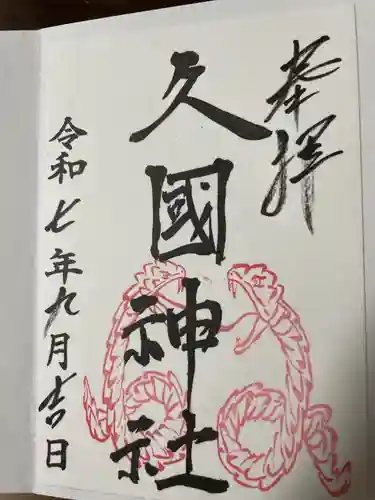 奉拝
久國神社
令和七年九月吉日